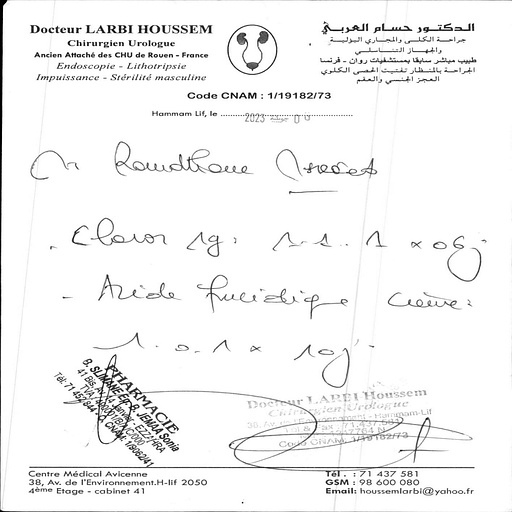 Docteur LARBI HOUSSEM
Chirurgien Urologue
Ancien Attaché des CHU de Rouen - France
Endoscopie - Lithotripsie
Impuissance - Stérilité masculine
الدكتور حسام العربي
جراحة الكلى والمجاري البولية
والجهاز التناسلي
طبيب مباشر سابقا بمستشفيات روان - فرنسا
الجراحة بالمنظار تفتيت الحصى الكلوي
العجز الجنسي والعقم
Code CNAM : 1/19182/73
Hammam Lif, le 2023
Mr Romdhane
- Clavor 1g : 1.1.1 x 06j
- Acide fucidique crème :
1.0.1 x 10j
PHARMACIE
B. SLIMANE ET B. JEMAA Sonia
Docteur LARBI Houssem
Chirurgien Urologue
Hammam-Lif
Code CNAM: 1/19182/73
Centre Médical Avicenne
38, Av. de l'Environnement.H-lif 2050
4ème Etage - cabinet 41
Tél. : 71 437 581
GSM : 98 600 080
Email: houssemlarbi@yahoo.fr